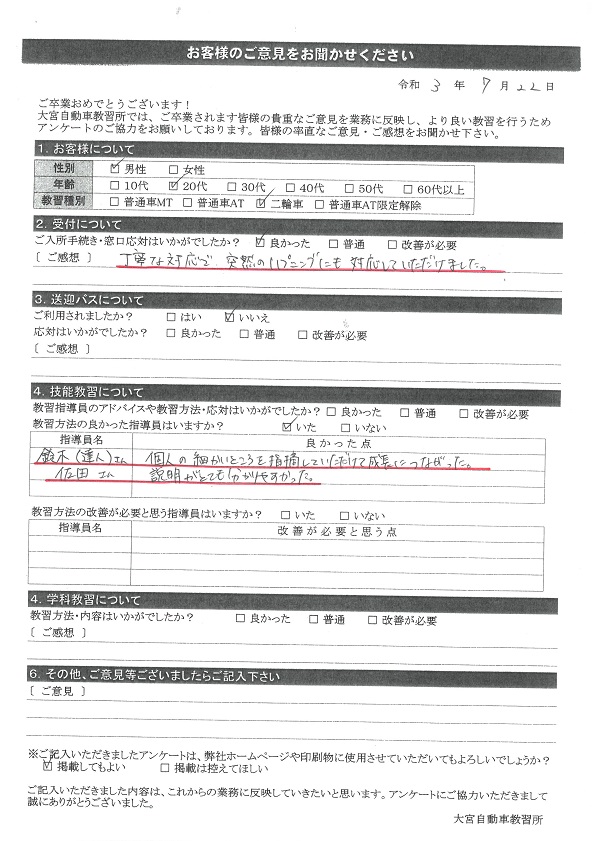 お客様のご意見をお聞かせください
令和 3 年 7 月 22 日
ご卒業おめでとうございます！
大宮自動車教習所では、ご卒業されます皆様の貴重なご意見を業務に反映し、より良い教習を行うため
アンケートのご協力をお願いしております。皆様の率直なご意見・ご感想をお聞かせ下さい。
1. お客様について
性別 ☑ 男性 □ 女性
年齢 □ 10代 ☑ 20代 □ 30代 □ 40代 □ 50代 □ 60代以上
教習種別 □ 普通車MT □ 普通車AT ☑ 二輪車 □ 普通車AT限定解除
2. 受付について
ご入所手続き・窓口応対はいかがでしたか？ ☑ 良かった □ 普通 □ 改善が必要
〔 ご感想 〕 丁寧な対応で、突然のハプニングにも対応していただけました。
3. 送迎バスについて
ご利用されましたか？ □ はい ☑ いいえ
応対はいかがでしたか？ □ 良かった □ 普通 □ 改善が必要
〔 ご感想 〕
4. 技能教習について
教習指導員のアドバイスや教習方法・応対はいかがでしたか？ □ 良かった □ 普通 □ 改善が必要
教習方法の良かった指導員はいますか？ ☑ いた □ いない
指導員名 良かった点
鈴木(達人)さん 個人の細かいところを指摘していただけて成長につながった。
佐田さん 説明がとても分かりやすかった。
教習方法の改善が必要と思う指導員はいますか？ □ いた □ いない
指導員名 改善が必要と思う点
4. 学科教習について
教習方法・内容はいかがでしたか？ □ 良かった □ 普通 □ 改善が必要
〔 ご感想 〕
6. その他、ご意見等ございましたらご記入下さい
〔 ご意見 〕
※ご記入いただきましたアンケートは、弊社ホームページや印刷物に使用させていただいてもよろしいでしょうか？
☑ 掲載してもよい □ 掲載は控えてほしい
ご記入いただきました内容は、これからの業務に反映していきたいと思います。アンケートにご協力いただきまして
誠にありがとうございました。
大宮自動車教習所